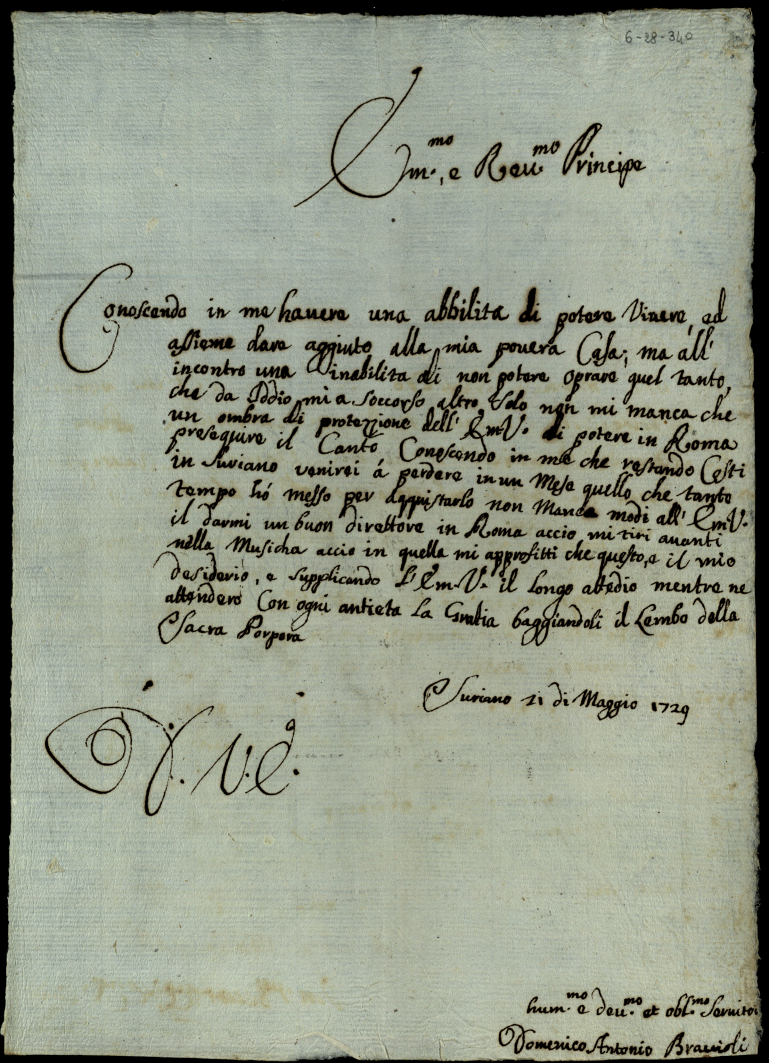 6-28-340
Em.mo, e Reu.mo Principe
Conoscendo in me hauere una abbilita di potere Viuere, ed
assieme dare aggiuto alla mia pouera Casa; ma all'
incontro una inabilita di non potere oprare quel tanto,
che da Iddio mi a soccorso altro solo non mi manca che
un ombra di protezzione dell' EmV. di potere in Roma
presequire il Canto, Conoscendo in me che restando Cesti
in Suriano venirei á perdere in un Mese quello, che tanto
tempo hó messo per Aqquistarlo non Manca modi all' EmV.
il darmi un buon direttore in Roma accio mi tiri auanti
nella Musicha accio in quella mi approfitti che questo, e il mio
desiderio, e supplicando l'Em.V. il longo attedio mentre ne
attendero Con ogni antieta la Gratia baggiandoli il Lembo della
Sacra Porpora
Suriano 21 di Maggio 1729
D. V. E.
hum.mo e deu.mo et obl.mo Seruitor
Domenico Antonio Braccioli